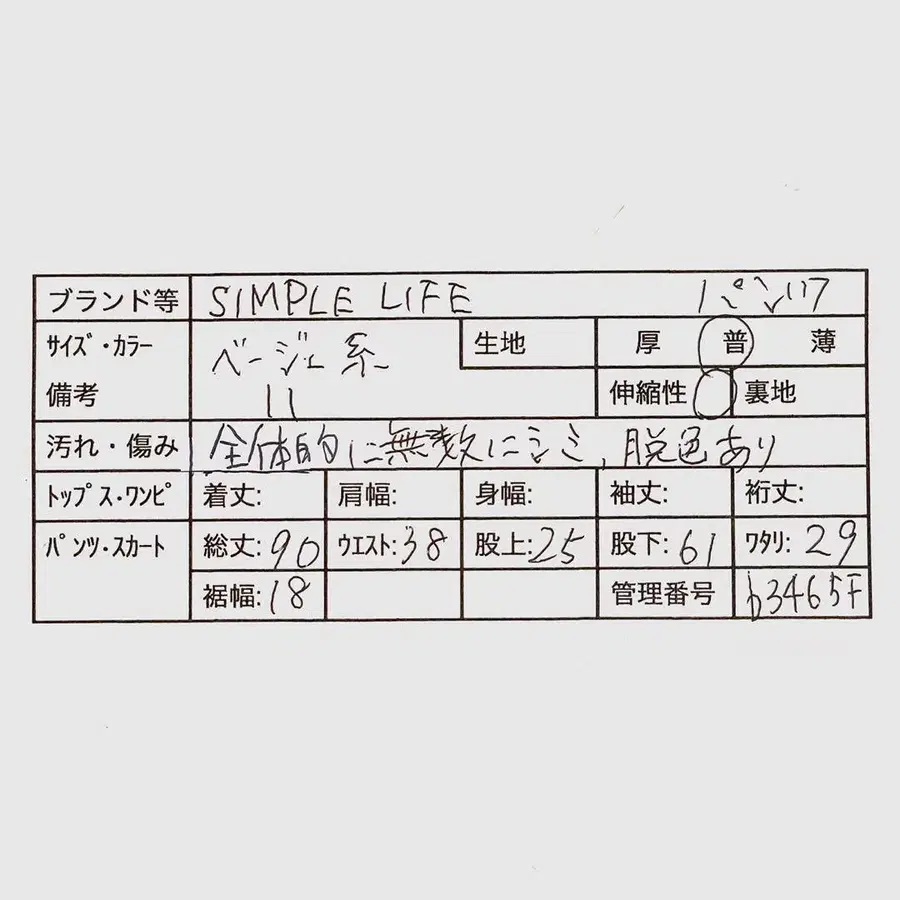 ブランド等 SIMPLE LIFE パンツ
サイズ・カラー ベージュ系 生地 厚 普 薄
備考 11 伸縮性 裏地
汚れ・傷み 全体的に無数にシミ,脱色あり
トップス・ワンピ 着丈: 肩幅: 身幅: 袖丈: 裄丈:
パンツ・スカート 総丈:90 ウエスト:38 股上:25 股下:61 ワタリ:29
裾幅:18 管理番号 b3465F